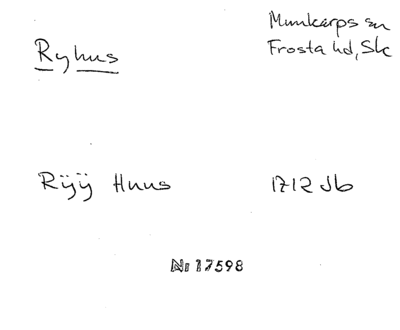 Ryhus
Munkarps sn
Frosta hd, Sk
Rÿÿ Huus
1712 Jb
Nr 17598